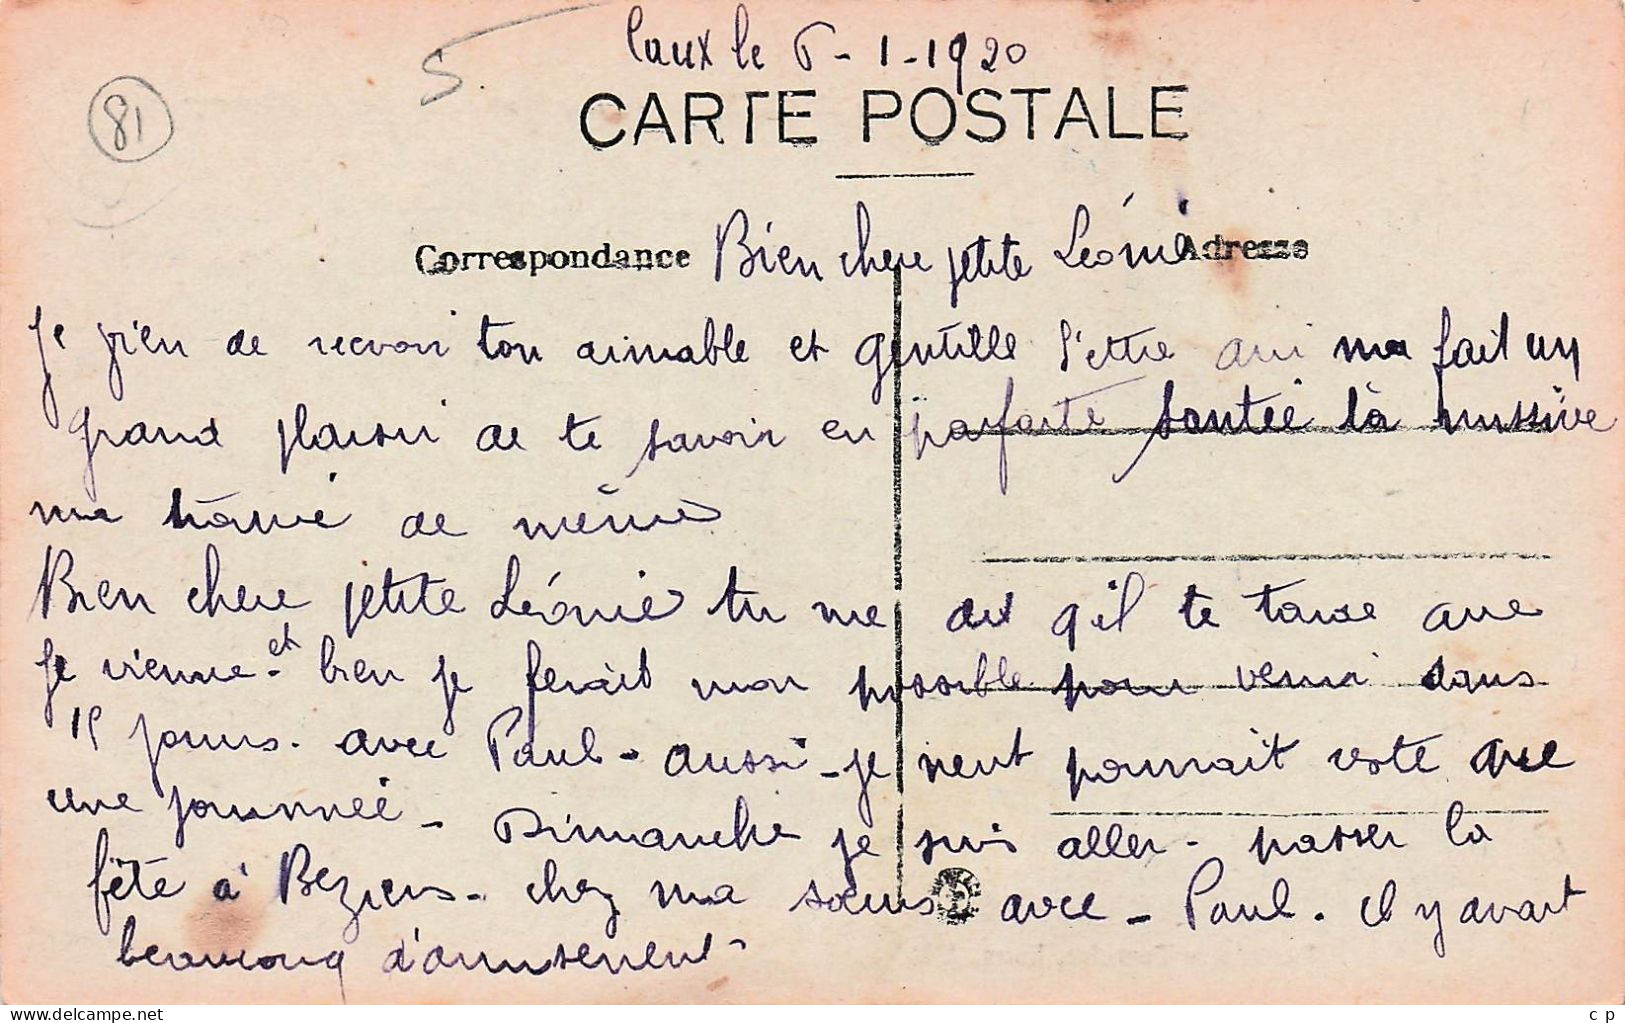 Caux le 6-1-1920
5
81
CARTE POSTALE
Correspondance
Adresse
Bien chere petite Léonie
Je vien de recevoir ton aimable et gentille l'ettre qui ma fait un
grand plaisir de te savoir en parfaite santée la missive
ma trouve de même
Bien chere petite Léonie tu me dit q'il te tarde que
je vienne et bien je ferait mon possible pour venir dans
15 jours. avec Paul - aussi - je neut pourrait reste que
une journnée - Dimanche je suis aller - passer la
fête a Beziers - chez ma soeurs avec - Paul. il y avait
beaucouq d'amusement -
c p
www.delcampe.net